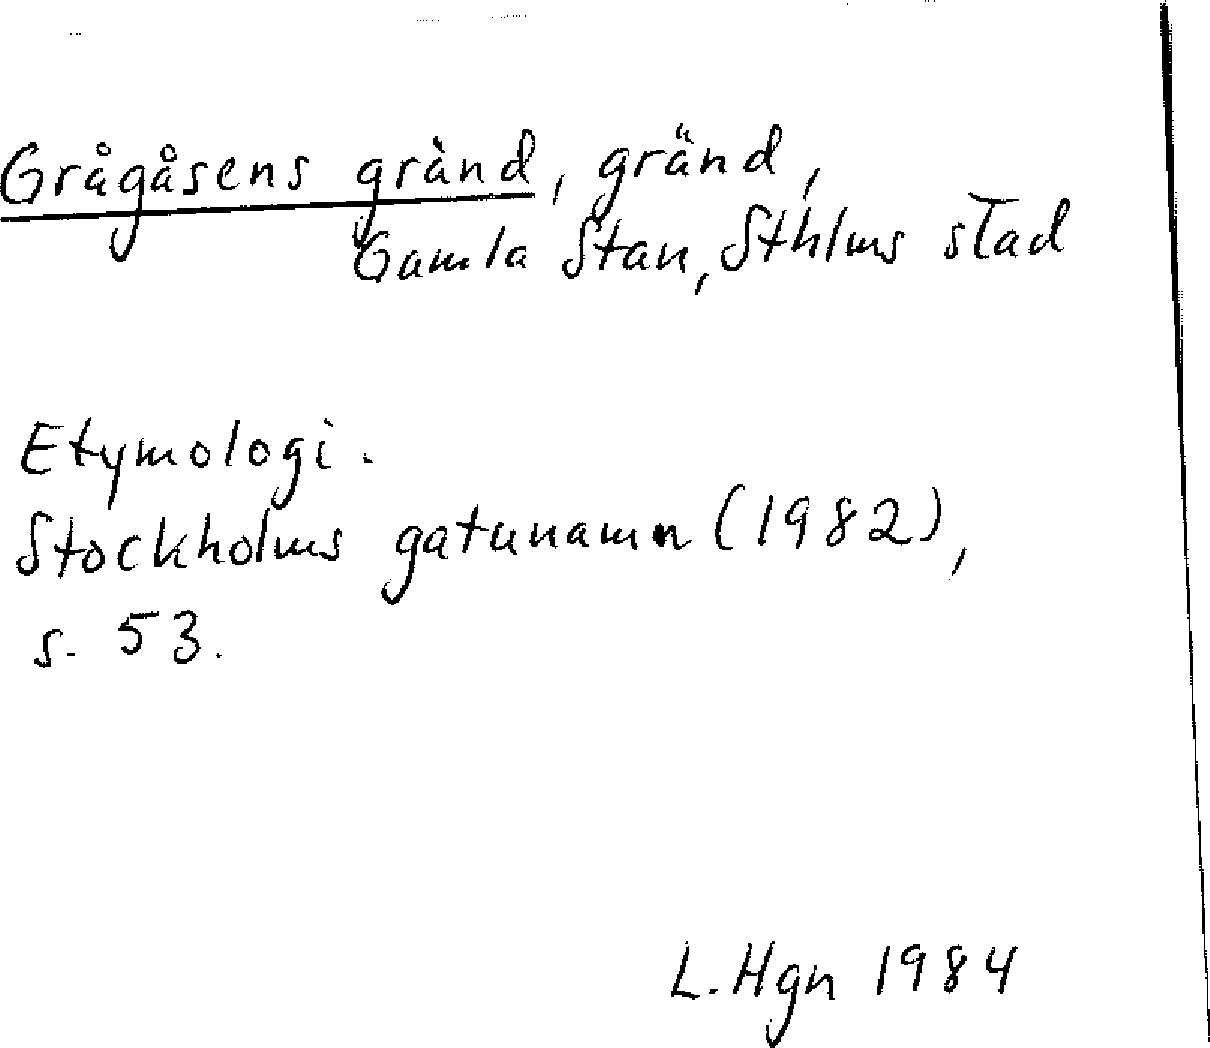 Grågåsens gränd, gränd,
Gamla Stan, Sthlms stad
Etymologi.
Stockholms gatunamn (1982),
s. 53.
L. Hgn 1984